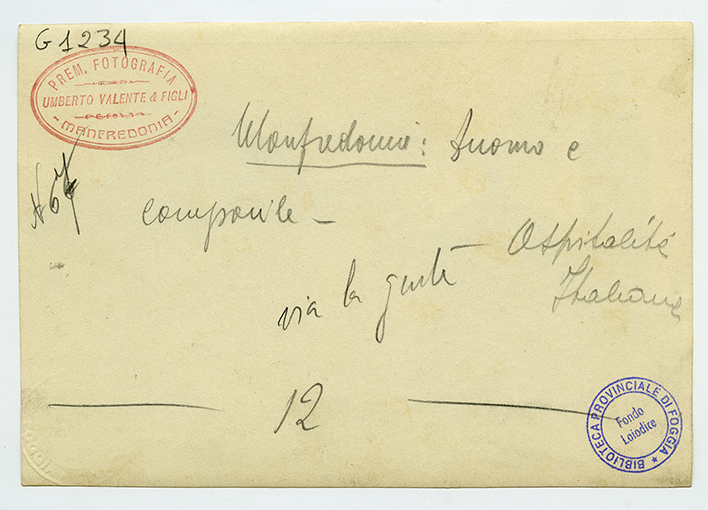 G 1234
PREM. FOTOGRAFIA
UMBERTO VALENTE & FIGLI
MANFREDONIA
Manfredonia: Duomo e
campanile -
N 67
Ospitalità
Italiana
via la
12
BIBLIOTECA PROVINCIALE DI FOGGIA
Fondo
Loiodice